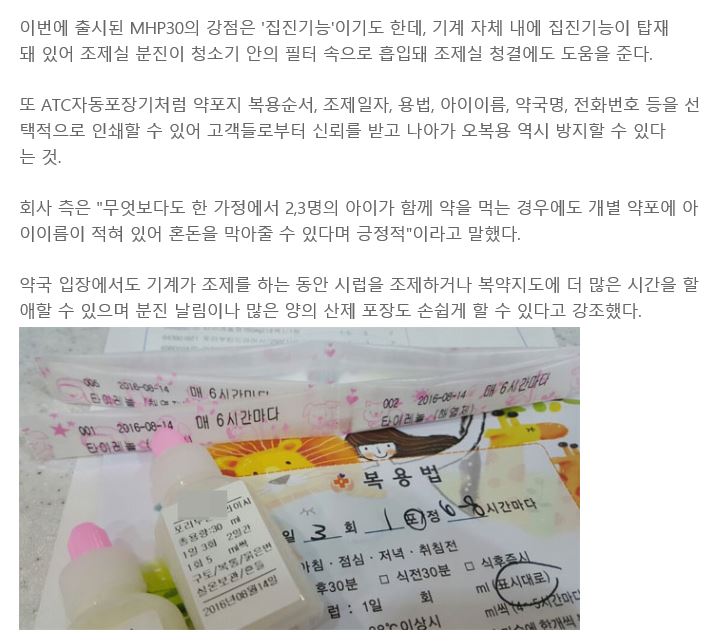 이번에 출시된 MHP30의 강점은 '집진기능'이기도 한데, 기계 자체 내에 집진기능이 탑재
돼 있어 조제실 분진이 청소기 안의 필터 속으로 흡입돼 조제실 청결에도 도움을 준다.
또 ATC자동포장기처럼 약포지 복용순서, 조제일자, 용법, 아이이름, 약국명, 전화번호 등을 선
택적으로 인쇄할 수 있어 고객들로부터 신뢰를 받고 나아가 오복용 역시 방지할 수 있다
는 것.
회사 측은 "무엇보다도 한 가정에서 2,3명의 아이가 함께 약을 먹는 경우에도 개별 약포에 아
이이름이 적혀 있어 혼돈을 막아줄 수 있다며 긍정적"이라고 말했다.
약국 입장에서도 기계가 조제를 하는 동안 시럽을 조제하거나 복약지도에 더 많은 시간을 할
애할 수 있으며 분진 날림이나 많은 양의 산제 포장도 손쉽게 할 수 있다고 강조했다.
006 2016-08-14 매 6시간마다
타이레놀
002 2016-08-14 매 6시간마다
타이레놀 (해열제)
001 2016-08-14 매 6시간마다
타이레놀 (해열제)
복용법
일 3 회 1 포 정 6-8 시간마다
아침 · 점심 · 저녁 · 취침전
후30분 □ 식전30분 □ 식후즉시
ml (표시대로)
럽 : 1일 회 ml씩 (4~5시간마다
38℃이상시
총용량:30 ml
1일 3회 2일간
1회 5 ml씩
구토/복통/묽은변
실온보관/흔들
2016년08월14일